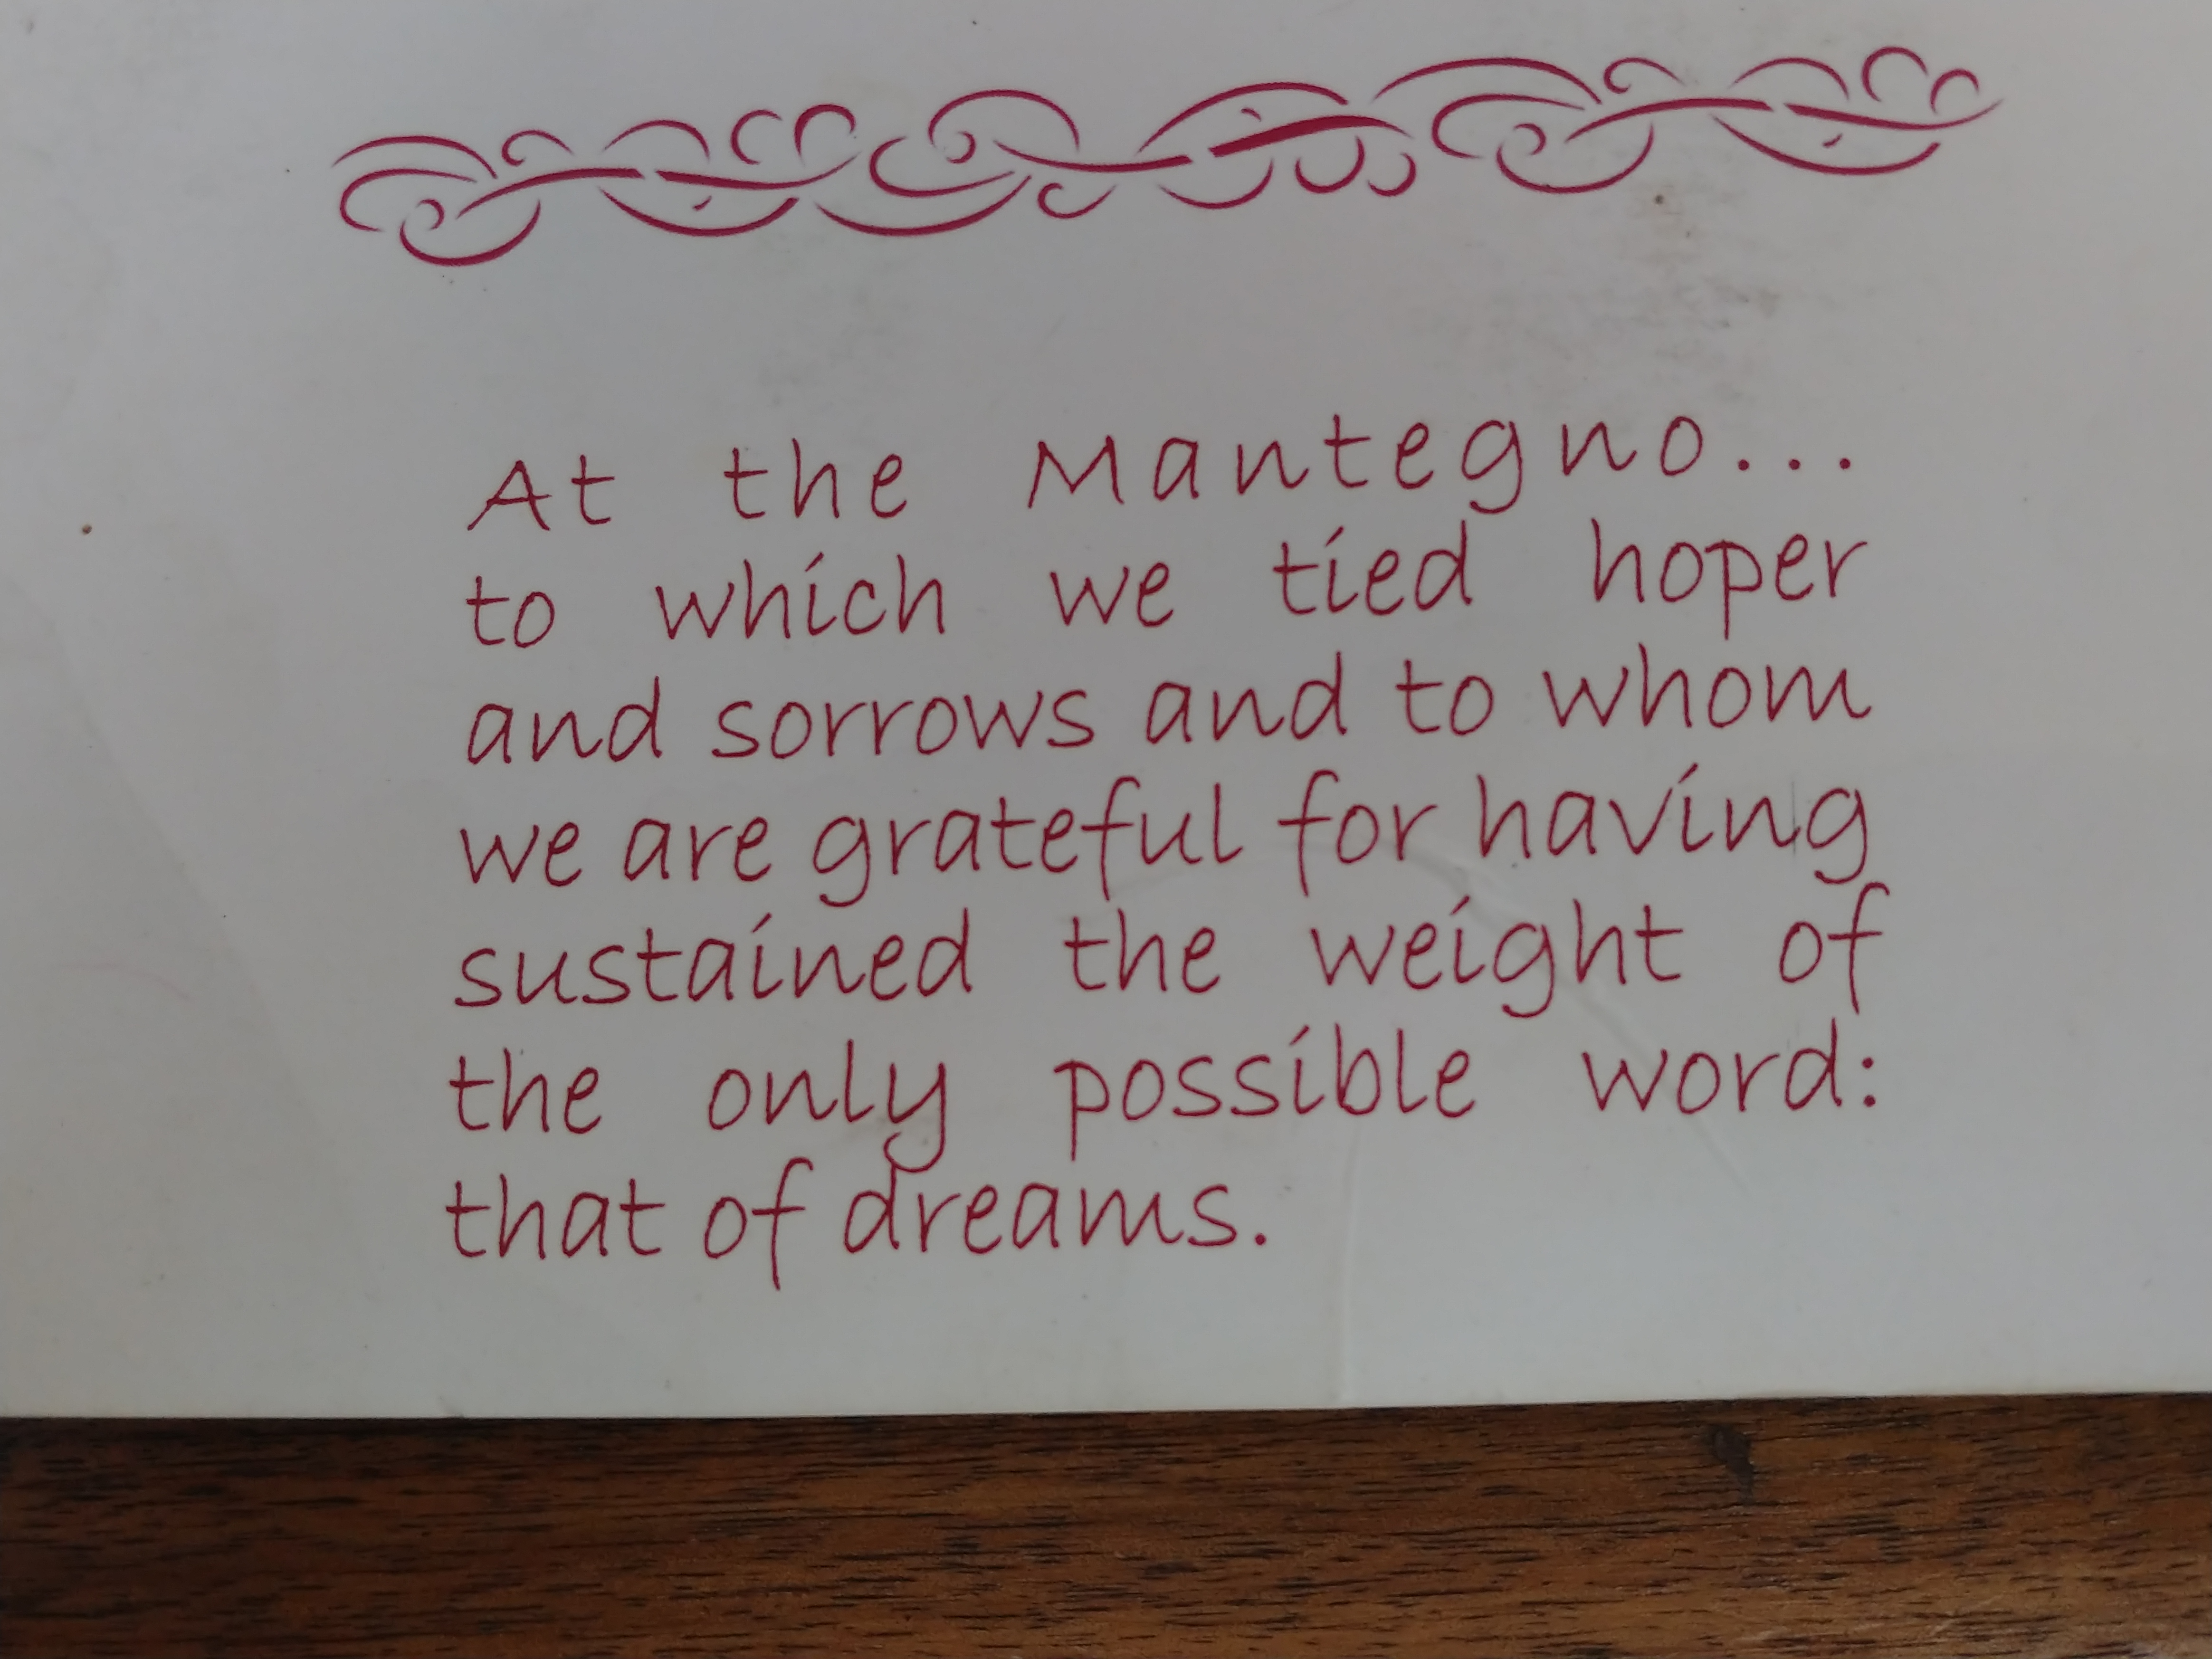 At the Mantegno...
to which we tied hoper
and sorrows and to whom
we are grateful for having
sustained the weight of
the only possible word:
that of dreams.